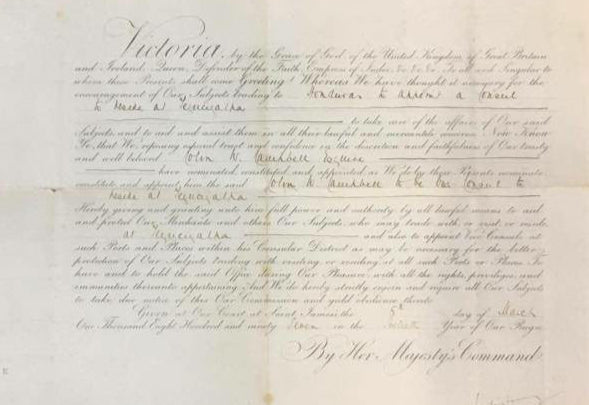 Victoria, by the Grace of God, of the United Kingdom of Great Britain
and Ireland, Queen, Defender of the Faith, Empress of India, &c &c &c. To all and Singular to
whom these Presents shall come Greeting! Whereas We have thought it necessary for the
encouragement of Our Subjects trading to Honduras to appoint a Consul
to reside at
to take care of the affairs of Our said
Subjects and to aid and assist them in all their lawful and mercantile concerns. Now Know
Ye, that We, reposing especial trust and confidence in the discretion and faithfulness of Our trusty
and well beloved John N. Campbell Esquire
have nominated, constituted and appointed as We do by these Presents nominate,
constitute and appoint him the said John N. Campbell to be Our Consul to
reside at
Hereby giving and granting unto him full power and authority by all lawful means to aid
and protect Our Merchants and others Our Subjects, who may trade with or visit or reside
at and also to appoint Vice Consuls at
such Ports and Places within his Consular District as may be necessary for the better
protection of Our Subjects trading with residing or residing at all such Ports or Places. To
have and to hold the said Office during Our Pleasure with all the rights, privileges, and
immunities thereunto appertaining. And We do hereby strictly enjoin and require all Our Subjects
to take due notice of this Our Commission and yield obedience thereto.
Given at Our Court at Saint James's the day of March
One Thousand Eight Hundred and ninety seven in the Year of Our Reign.
By Her Majesty's Command